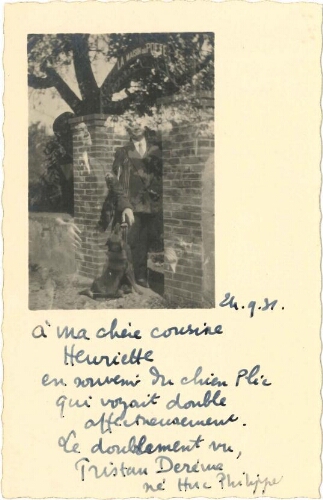 24.9.31.
à ma chère cousine
Henriette
en souvenir du chien Plic
qui voyait double
affectueusement.
Le doublement vu,
Tristan Derème
né Huc Philippe